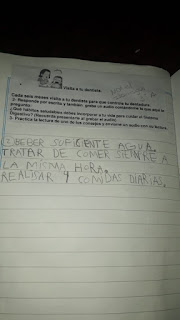 Visita a tu dentista
Cada seis meses visita a tu dentista para que controle tu dentadura.
3- Responde por escrito y también grabo un audio contestando la que aquí te
pregunto:
¿Qué hábitos saludables debes incorporar a tu vida para cuidar el Sistema
Digestivo? (Recuerda presentarte al grabar el audio)
5- Practica la lectura de uno de los consejos y envíame un audio con su lectura.
BEBER SUFICIENTE AGUA.
TRATAR DE COMER SIEMPRE A
LA MISMA HORA.
REALISAR 4 COMIDAS DIARIAS.